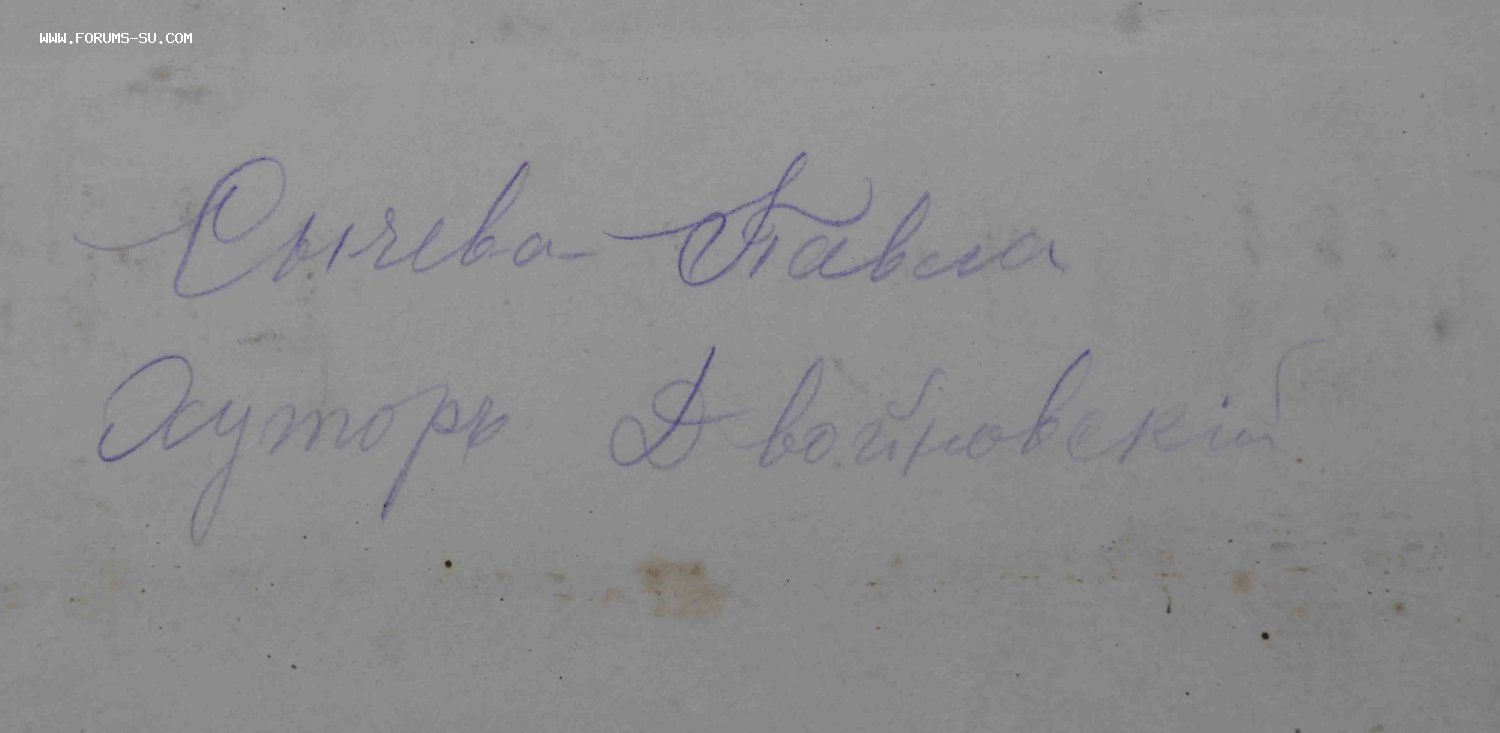 WWW.FORUMS-SU.COM
Сычева Павла
Хуторъ Двойновскій